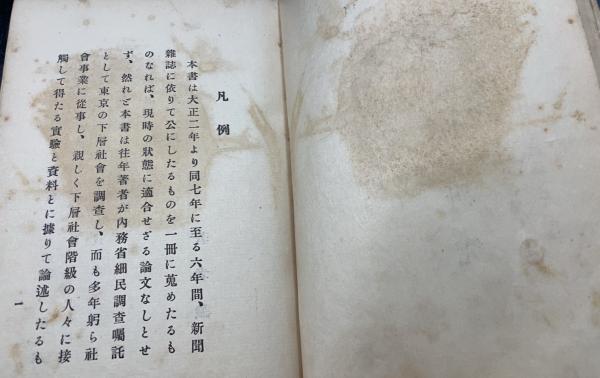 凡例
本書は大正二年より同七年に至る六年間、新聞
雜誌に依りて公にしたるものを一冊に蒐めたるも
のなれば、現時の狀態に適合せざる論文なしとせ
ず、然れど本書は往年著者が內務省細民調查囑託
として東京の下層社會を調查し、而も多年躬ら社
會事業に從事し、親しく下層社會階級の人々に接
觸して得たる實驗と資料とに據りて論述したるも
一